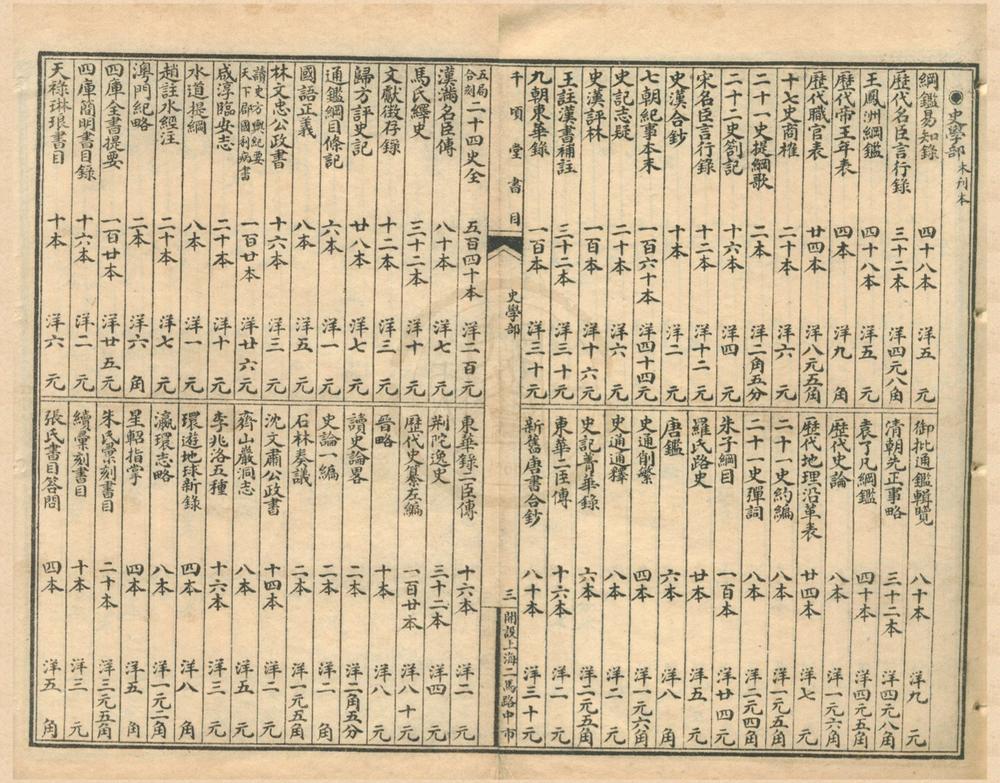 史學部 木刋本
綱鑑易知錄 四十八本 洋五元
御批通鑑輯覽 八十本 洋九元
歷代名臣言行錄 三十二本 洋四元八角
清朝先正事略 三十二本 洋四元八角
王鳳洲綱鑑 四十八本 洋五元
袁了凡綱鑑 四十本 洋四元五角
歷代帝王年表 四本 洋九角
歷代史論 八本 洋一元六角
歷代職官表 廿四本 洋八元五角
歷代地理沿革表 廿四本 洋七元
十七史商榷 二十本 洋六元
二十一史約編 八本 洋一元五角
二十一史提綱歌 二本 洋二角五分
二十一史彈詞 八本 洋二元四角
二十二史劄記 十六本 洋四元
朱子綱目 一百本 洋廿四元
宋名臣言行錄 十二本 洋十二元
羅氏路史 廿本 洋五元
史漢合鈔 十本 洋二元
唐鑑 六本 洋八角
七朝紀事本末 一百六十本 洋四十四元
史通削繁 四本 洋一元六角
史記志疑 二十本 洋六元
史通通釋 八本 洋二元
史漢評林 一百本 洋十六元
史記菁華錄 六本 洋二元五角
王註漢書補註 三十二本 洋三十元
東華二臣傳 十六本 洋二元
九朝東華錄 一百本 洋三十元
新舊唐書合鈔 八十本 洋三十元
千頃堂書目 史學部 三 開設上海二馬路中市
五局合刻二十四史全 五百四十本 洋二百元
東華錄二臣傳 十六本 洋二元
漢滿名臣傳 八十本 洋七元
荆陀逸史 三十二本 洋四元
馬氏繹史 三十二本 洋十元
歷代史纂左編 一百廿本 洋八十元
文獻徵存錄 十二本 洋三元
晉略 十本 洋八元
歸方評史記 廿八本 洋七元
讀史論畧 二本 洋二角五分
通鑑綱目條記 六本 洋一元
史論一編 二本 洋二角
國語正義 八本 洋五元
石林奏議 二本 洋一元五角
林文忠公政書 十六本 洋三元
沈文肅公政書 十四本 洋二元
讀史方輿紀要 天下郡國利病書 一百廿本 洋廿六元
齊山巖洞志 八本 洋五元
咸淳臨安志 二十本 洋十元
李兆洛五種 十六本 洋三元
水道提綱 八本 洋一元
環遊地球新錄 四本 洋八角
趙註水經注 二十本 洋七元
瀛環志略 八本 洋一元二角
澳門紀略 二本 洋六角
星軺指掌 四本 洋五角
四庫全書提要 一百廿本 洋廿五元
朱氏彙刻書目 二十本 洋三元五角
四庫簡明書目錄 十六本 洋二元
續彙刻書目 十本 洋三元
天祿琳琅書目 十本 洋六元
張氏書目答問 四本 洋五角